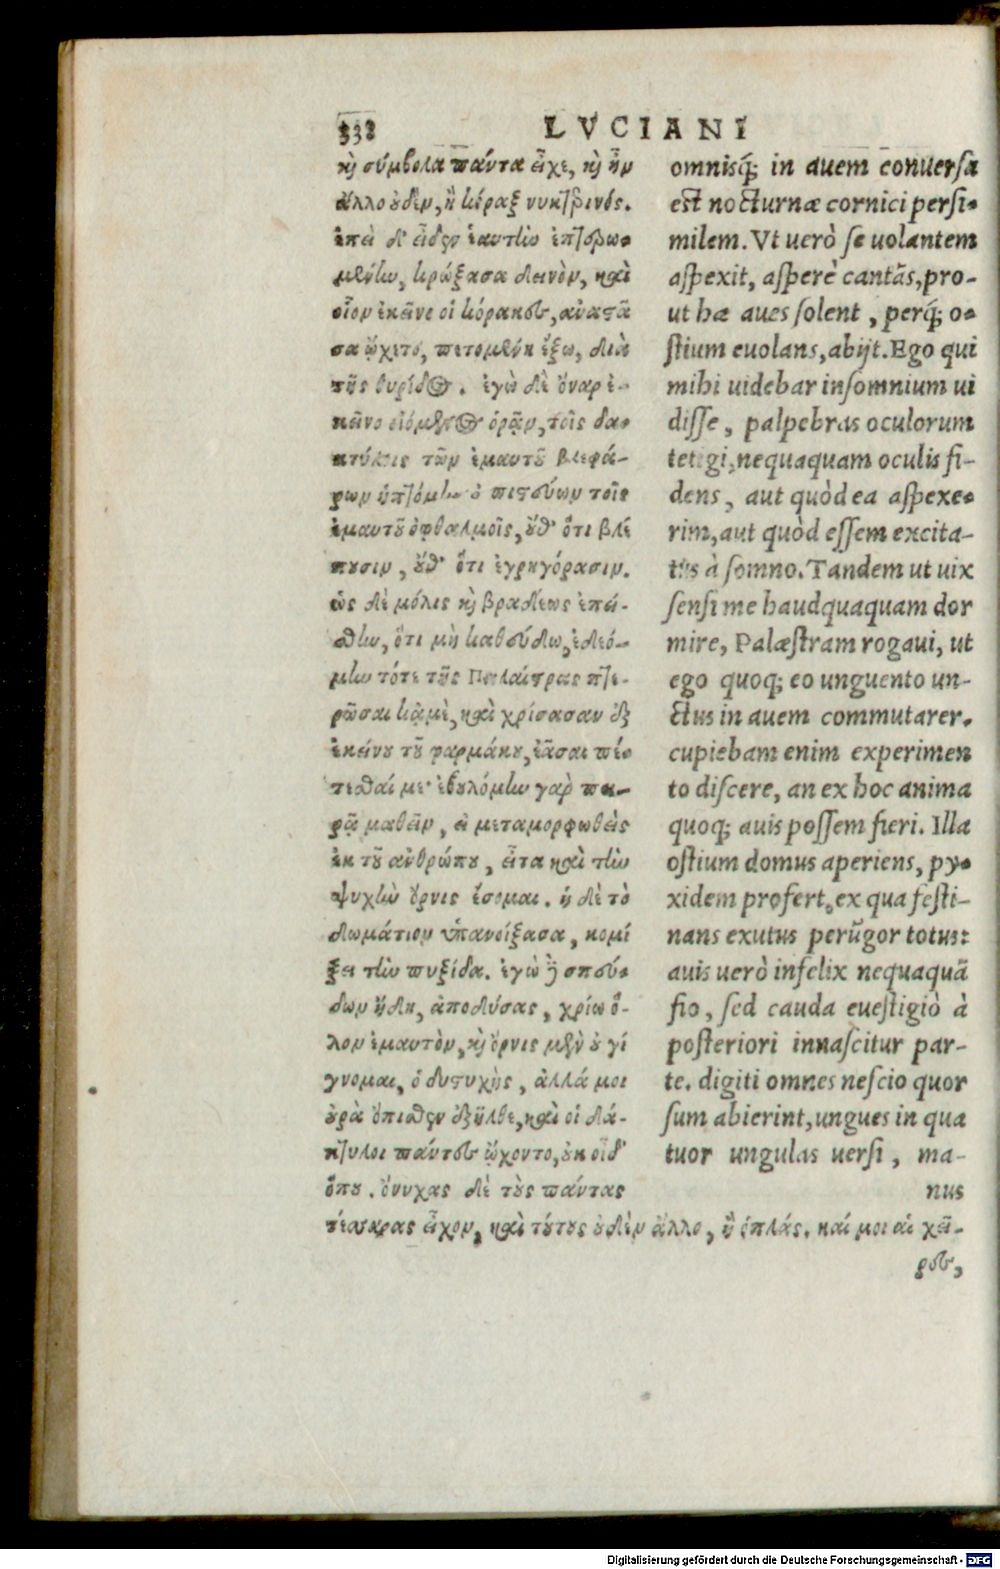 338 LVCIANI
καὶ σύμβολα πάντα εἶχε, καὶ ἦν
ἄλλο οὐδὲν, ἢ κόραξ νυκτερινός.
ἐπεὶ δ' εἶδεν ἑαυτὴν ἐπτερω-
μένην, κρώξασα δεινὸν, καὶ
οἷον ἐκεῖνοι οἱ κόρακες, ἀναστᾶ
σα ᾤχετο, πετομένη ἔξω, διὰ
τῆς θυρίδος. ἐγὼ δὲ ὄναρ ἐ-
κεῖνο οἰόμενος ὁρᾷν, τοῖς δα-
κτύλοις τῶν ἐμαυτοῦ βλεφά-
ρων ἡπτόμην ὀ πιστεύων τοῖς
ἐμαυτοῦ ὀφθαλμοῖς, οὔθ' ὅτι βλέ
πουσιν, οὔθ' ὅτι ἐγρηγόρασιν.
ὡς δὲ μόλις καὶ βραδέως ἐπεί-
σθην, ὅτι μὴ καθεύδω, ἐδεό-
μην τότε τῆς Παλαίστρας πτε-
ρῶσαι κᾀμὲ, καὶ χρίσασαν ἐξ
ἐκείνου τοῦ φαρμάκου, ἐᾶσαι πέ-
τεσθαί με· ἐβουλόμην γὰρ πει-
ρᾷ μαθεῖν, εἰ μεταμορφωθεὶς
ἐκ τοῦ ἀνθρώπου, εἶτα καὶ τὴν
ψυχὴν ὄρνις ἔσομαι. ἡ δὲ τὸ
δωμάτιον ὑπανοίξασα, κομί
ζει τὴν πυξίδα. ἐγὼ δὲ σπεύ-
δων ἤδη, ἀποδύσας, χρίω ὅ-
λον ἐμαυτὸν, καὶ ὄρνις μὲν οὐ γί
γνομαι, ὁ δυστυχὴς, ἀλλά μοι
οὐρὰ ὄπισθεν ἐξῆλθε, καὶ οἱ δά-
κτυλοι πάντες ᾤχοντο, οὐκ οἶδ'
ὅπου. ὄνυχας δὲ τοὺς πάντας
τέσσαρας εἶχον, καὶ τούτους οὐδὲν ἄλλο, ἢ ὁπλάς. καί μοι αἱ χεῖ-
ρες,
omnisq́; in auem conuersa
est nocturnæ cornici persi-
milem. Vt uerò se uolantem
aspexit, asperè cantãs, pro-
ut hæ aues solent, perq́; o-
stium euolans, abijt. Ego qui
mihi uidebar insomnium ui
disse, palpebras oculorum
tetigi, nequaquam oculis fi-
dens, aut quòd ea aspexe-
rim, aut quòd essem excita-
tus à somno. Tandem ut uix
sensi me haudquaquam dor
mire, Palæstram rogaui, ut
ego quoq; eo unguento un-
ctus in auem commutarer.
cupiebam enim experimen
to discere, an ex hoc anima
quoq; auis possem fieri. Illa
ostium domus aperiens, py-
xidem profert, ex qua festi-
nans exutus perũgor totus:
auis uerò infelix nequaquã
fio, sed cauda euestigiò à
posteriori innascitur par-
te. digiti omnes nescio quor
sum abierint, ungues in qua
tuor ungulas uersi, ma-
nus
Digitalisierung gefördert durch die Deutsche Forschungsgemeinschaft - DFG